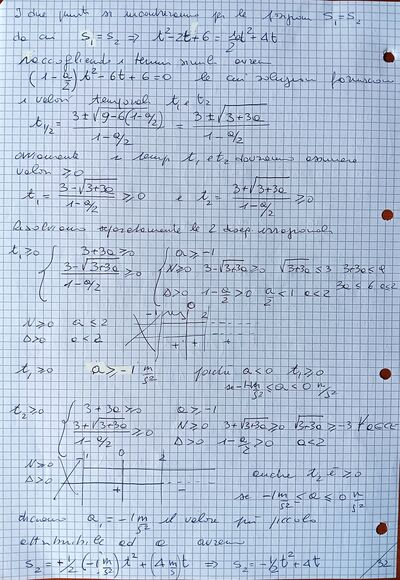 I due punti si incontreranno per le posizioni S₁=S₂
da cui S₁=S₂ ⇒ t²-2t+6 = 1/2 a t²+4t
raccogliendo i termini simili avremo
(1-a/2)t²-6t+6=0 le cui soluzioni forniscono
i valori temporali t₁ e t₂
t₁/₂ = (3±√(9-6(1-a/2)))/(1-a/2) = (3±√(3+3a))/(1-a/2)
ovviamente i tempi t₁ e t₂ dovranno assumere
valori ≥0
t₁ = (3-√(3+3a))/(1-a/2) ≥0 e t₂ = (3+√(3+3a))/(1-a/2) ≥0
Risolviamo separatamente le 2 diseq irrazionali
t₁≥0 { 3+3a≥0 { a≥-1
(3-√(3+3a))/(1-a/2) ≥0 N≥0 3-√(3+3a)≥0 √(3+3a)≤3 3+3a≤9
D>0 1-a/2>0 a/2<1 a<2 3a≤6 a≤2
-1 0 2
N≥0 a≤2
D>0 a<2
+ +
t₁≥0 a≥-1 m/s² poiché a<0 t₁≥0
se -1 m/s² ≤a<0 m/s²
t₂≥0 { 3+3a≥0 a≥-1
(3+√(3+3a))/(1-a/2) ≥0 N≥0 3+√(3+3a)≥0 √(3+3a)≥-3
D>0 1-a/2>0 a<2
-1 0 2
N≥0
D>0 + -
anche t₂ è ≥0
se -1 m/s² ≤a≤0 m/s²
diciamo a₁=-1 m/s² il valore più piccolo
attribuibile ad a avremo
S₂=+1/2(-1 m/s²)t²+(4 m/s)t ⇒ S₂=-1/2t²+4t